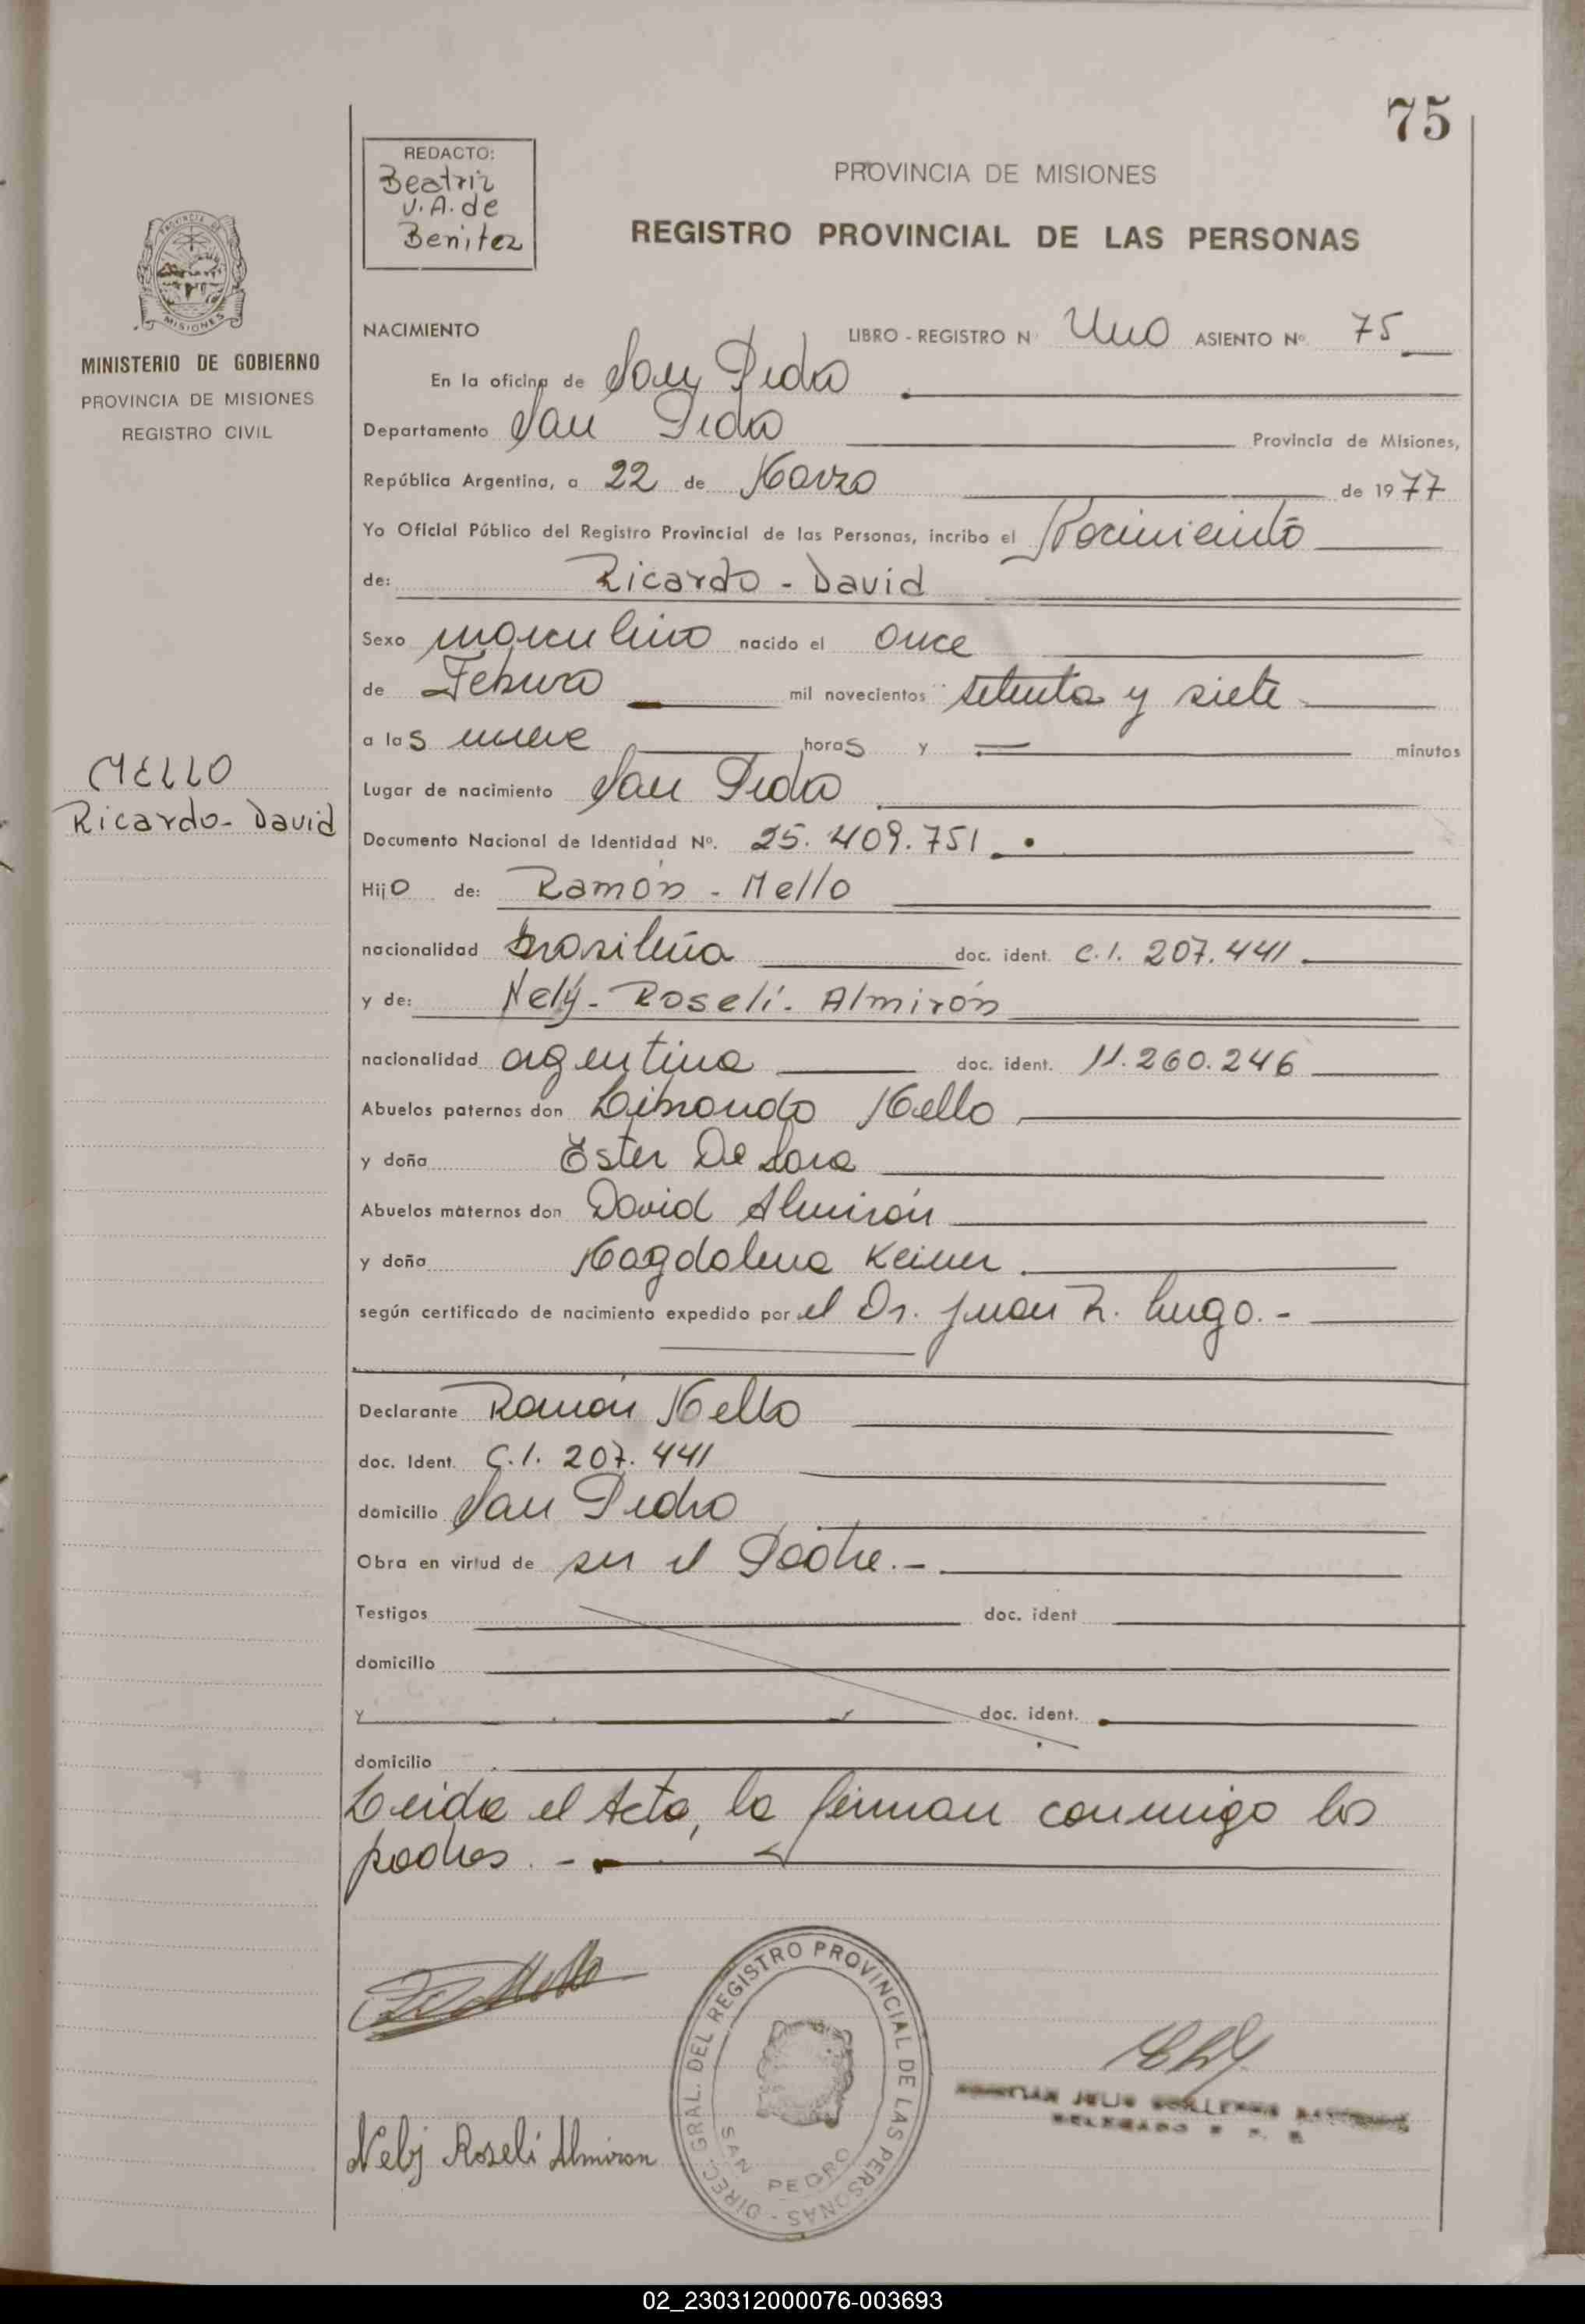 75
REDACTO:
Beatriz
V. A. de
Benitez
PROVINCIA DE MISIONES
REGISTRO PROVINCIAL DE LAS PERSONAS
MISIONES
MINISTERIO DE GOBIERNO
PROVINCIA DE MISIONES
REGISTRO CIVIL
MELLO
Ricardo - David
NACIMIENTO LIBRO - REGISTRO N° Uno ASIENTO N° 75
En la oficina de San Pedro
Departamento San Pedro Provincia de Misiones,
República Argentina, a 22 de Marzo de 1977
Yo Oficial Público del Registro Provincial de las Personas, incribo el Nacimiento
de: Ricardo - David
Sexo masculino nacido el once
de Febrero mil novecientos setenta y siete
a las nueve horas y = minutos
Lugar de nacimiento San Pedro
Documento Nacional de Identidad N°. 25.409.751.
Hijo de: Ramón - Mello
nacionalidad brasileña doc. ident. C.I. 207.441.
y de: Nely - Roseli - Almirón
nacionalidad argentina doc. ident. 11.260.246
Abuelos paternos don Mello
y doña Ester De Lara
Abuelos maternos don David Almirón
y doña Magdalena
según certificado de nacimiento expedido por el Dr. Juan R. Lugo. -
Declarante Ramón Mello
doc. Ident. C.I. 207.441
domicilio San Pedro
Obra en virtud de ser el Padre. -
Testigos doc. ident
domicilio
y doc. ident.
domicilio
Leída el Acta, la firman conmigo los
padres. -
Nely Roseli Almiron
DIREC. GRAL. DEL REGISTRO PROVINCIAL DE LAS PERSONAS -
SAN PEDRO
JULIO
DELEGADO
02_230312000076-003693